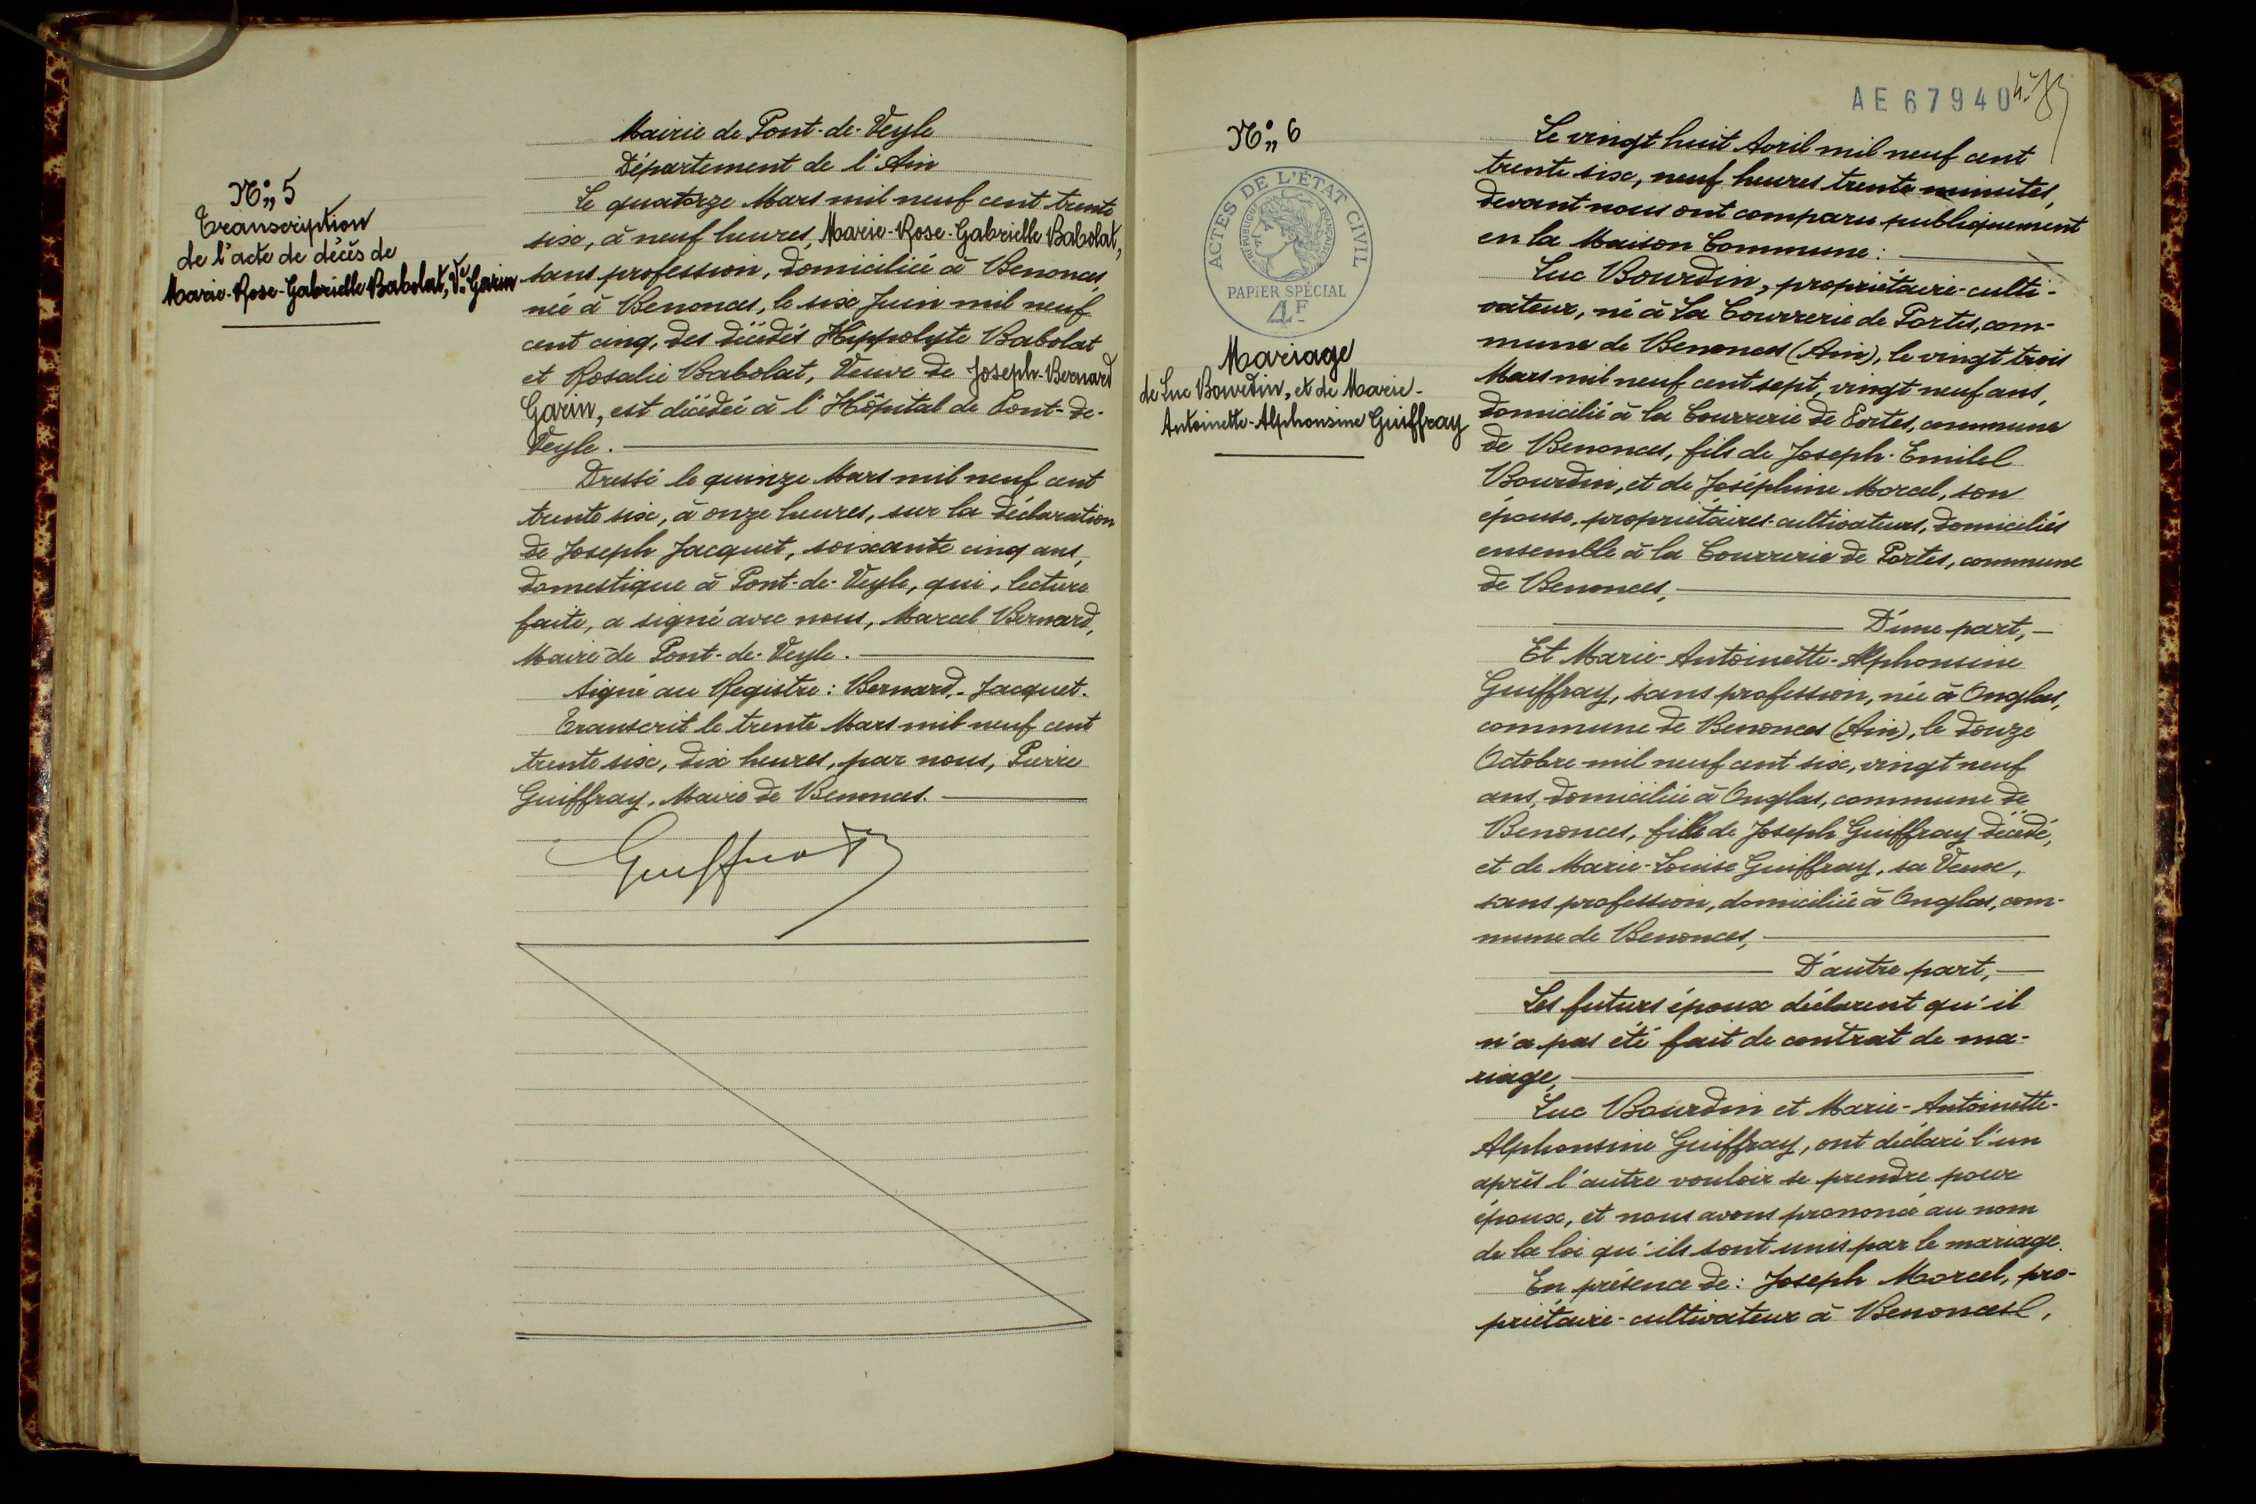 N° 5
Transcription
de l'acte de décès de
Marie-Rose-Gabrielle Babolat, Ve Garin
Mairie de Pont-de-Veyle
Département de l'Ain
Le quatorze Mars mil neuf cent trente
six, à neuf heures, Marie-Rose-Gabrielle Babolat,
sans profession, domiciliée à Benonces,
née à Benonces, le six Juin mil neuf
cent cinq, des décédés Hippolyte Babolat
et Rosalie Babolat, Veuve de Joseph-Bernard
Garin, est décédée à l'Hôpital de Pont-de-
Veyle.
Dressé le quinze Mars mil neuf cent
trente six, à onze heures, sur la déclaration
de Joseph Jacquet, soixante cinq ans,
domestique à Pont-de-Veyle, qui, lecture
faite, a signé avec nous, Marcel Bernard,
Maire de Pont-de-Veyle.
Signé au Registre : Bernard,- Jacquet.
Transcrit le trente Mars mil neuf cent
trente six, dix heures, par nous, Pierre
Guiffray, Maire de Benonces.
Guiffray
AE 67940
N° 6
ACTES DE L'ÉTAT CIVIL
RÉPUBLIQUE FRANÇAISE
PAPIER SPÉCIAL
4F
Mariage
de Luc Bourdin, et de Marie-
Antoinette-Alphonsine Guiffray
Le vingt huit Avril mil neuf cent
trente six, neuf heures trente minutes,
devant nous ont comparu publiquement
en la Maison Commune :
Luc Bourdin, propriétaire-culti-
vateur, né à La Courrerie de Portes, com-
mune de Benonces (Ain), le vingt trois
Mars mil neuf cent sept, vingt neuf ans,
domicilié à la Courrerie de Portes, commune
de Benonces, fils de Joseph-Emile
Bourdin, et de Joséphine Morcel, son
épouse, propriétaires-cultivateurs, domiciliés
ensemble à la Courrerie de Portes, commune
de Benonces,
D'une part,
Et Marie-Antoinette-Alphonsine
Guiffray, sans profession, née à Onglas,
commune de Benonces (Ain), le douze
Octobre mil neuf cent six, vingt neuf
ans, domiciliée à Onglas, commune de
Benonces, fille de Joseph Guiffray décédé,
et de Marie-Louise Guiffray, sa Veuve,
sans profession, domiciliée à Onglas, com-
mune de Benonces,
D'autre part,
Les futurs époux déclarent qu'il
n'a pas été fait de contrat de ma-
riage,
Luc Bourdin et Marie-Antoinette-
Alphonsine Guiffray, ont déclaré l'un
après l'autre vouloir se prendre pour
époux, et nous avons prononcé au nom
de la loi qu'ils sont unis par le mariage.
En présence de : Joseph Morcel, pro-
priétaire-cultivateur à Benonces,